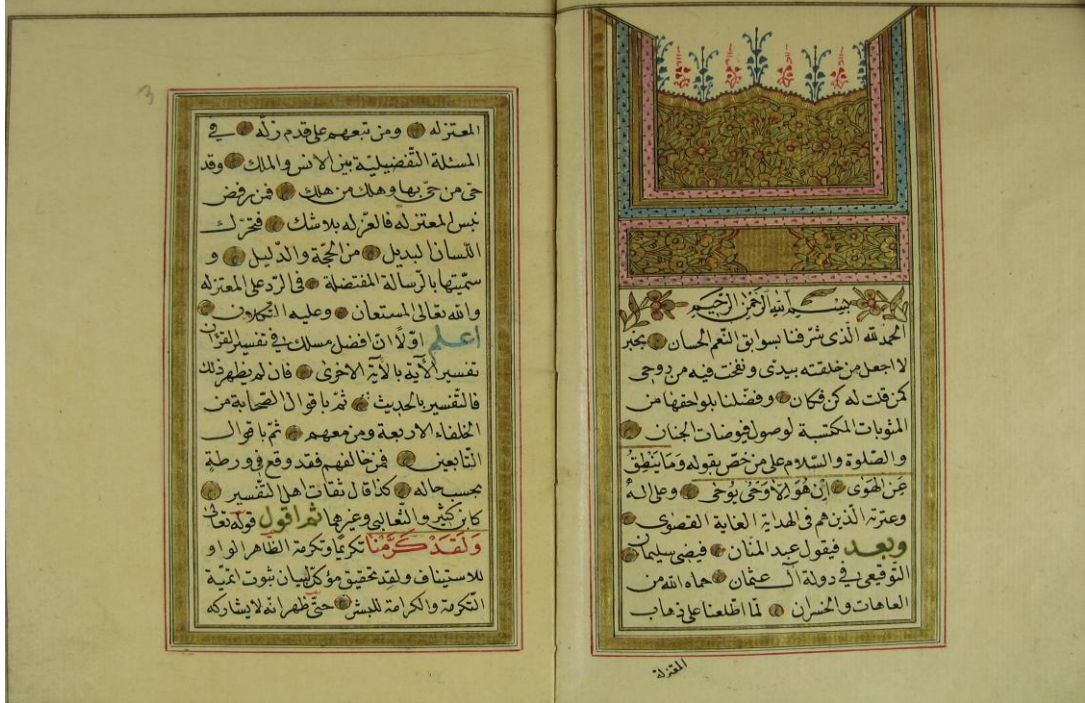 بسم الله الرحمن الرحيم
الحمد لله الذى شرفنا بسوابق النعم الحسان بخبر
لا اجعل من خلقته بيدى و نفخت فيه من روحى
كمن قلت له كن فكان وفضلنا بلواحقها من
المثوبات المكتسبة لوصول فيوضات الجنان
والصلوة والسلام على من خص بقوله وَمَا يَنْطِقُ
عَنِ الهَوٰى اِنْ هُوَ اِلَّا وَحْىٌ يُوحٰى وعلى اله
وعترته الذين هم فى الهداية الغاية القصوى
وبعد فيقول عبد المنان فيضى سليمان
التوقيعى فى دولة آل عثمان حماه الله من
العاهات والخسران لما اطلعنا على ذهاب
المعتزلة
3
المعتزله ومن تبعهم على قدم زله فى
المسئلة التفضيلية بين الانس والملك وقد
حى من حى بها وهلك من هلك فمن رفض
نبس المعتزله فالعز له بلا شك فتحرك
اللسان لبديل من الحجة والدليل و
سميتها بالرسالة المفتضلة فى الرد على المعتزله
والله تعالى المستعان وعليه التكلان
اعلم اولا ان افضل مسلك فى تفسير القرآن
تفسير الآية بالآية الاخرى فان لم يظهر ذلك
فالتفسير بالحديث ثم باقوال الصحابة من
الخلفاء الاربعة ومن معهم ثم باقوال
التابعين فمن خالفهم فقد وقع فى ورطة
بحسب حاله كذا قال ثقات اهل التفسير
كابن كثير والثعالبى وغيرها ثم اقول قوله تعالى
وَلَقَدْ كَرَّمْنَا تكريما وتكرمة الظاهر الواو
للاستيناف ولقد تحقيق مؤكد لبيان ثبوت اتمية
التكرمة والكرامة للبشر حتى ظهر انه لا يشاركه